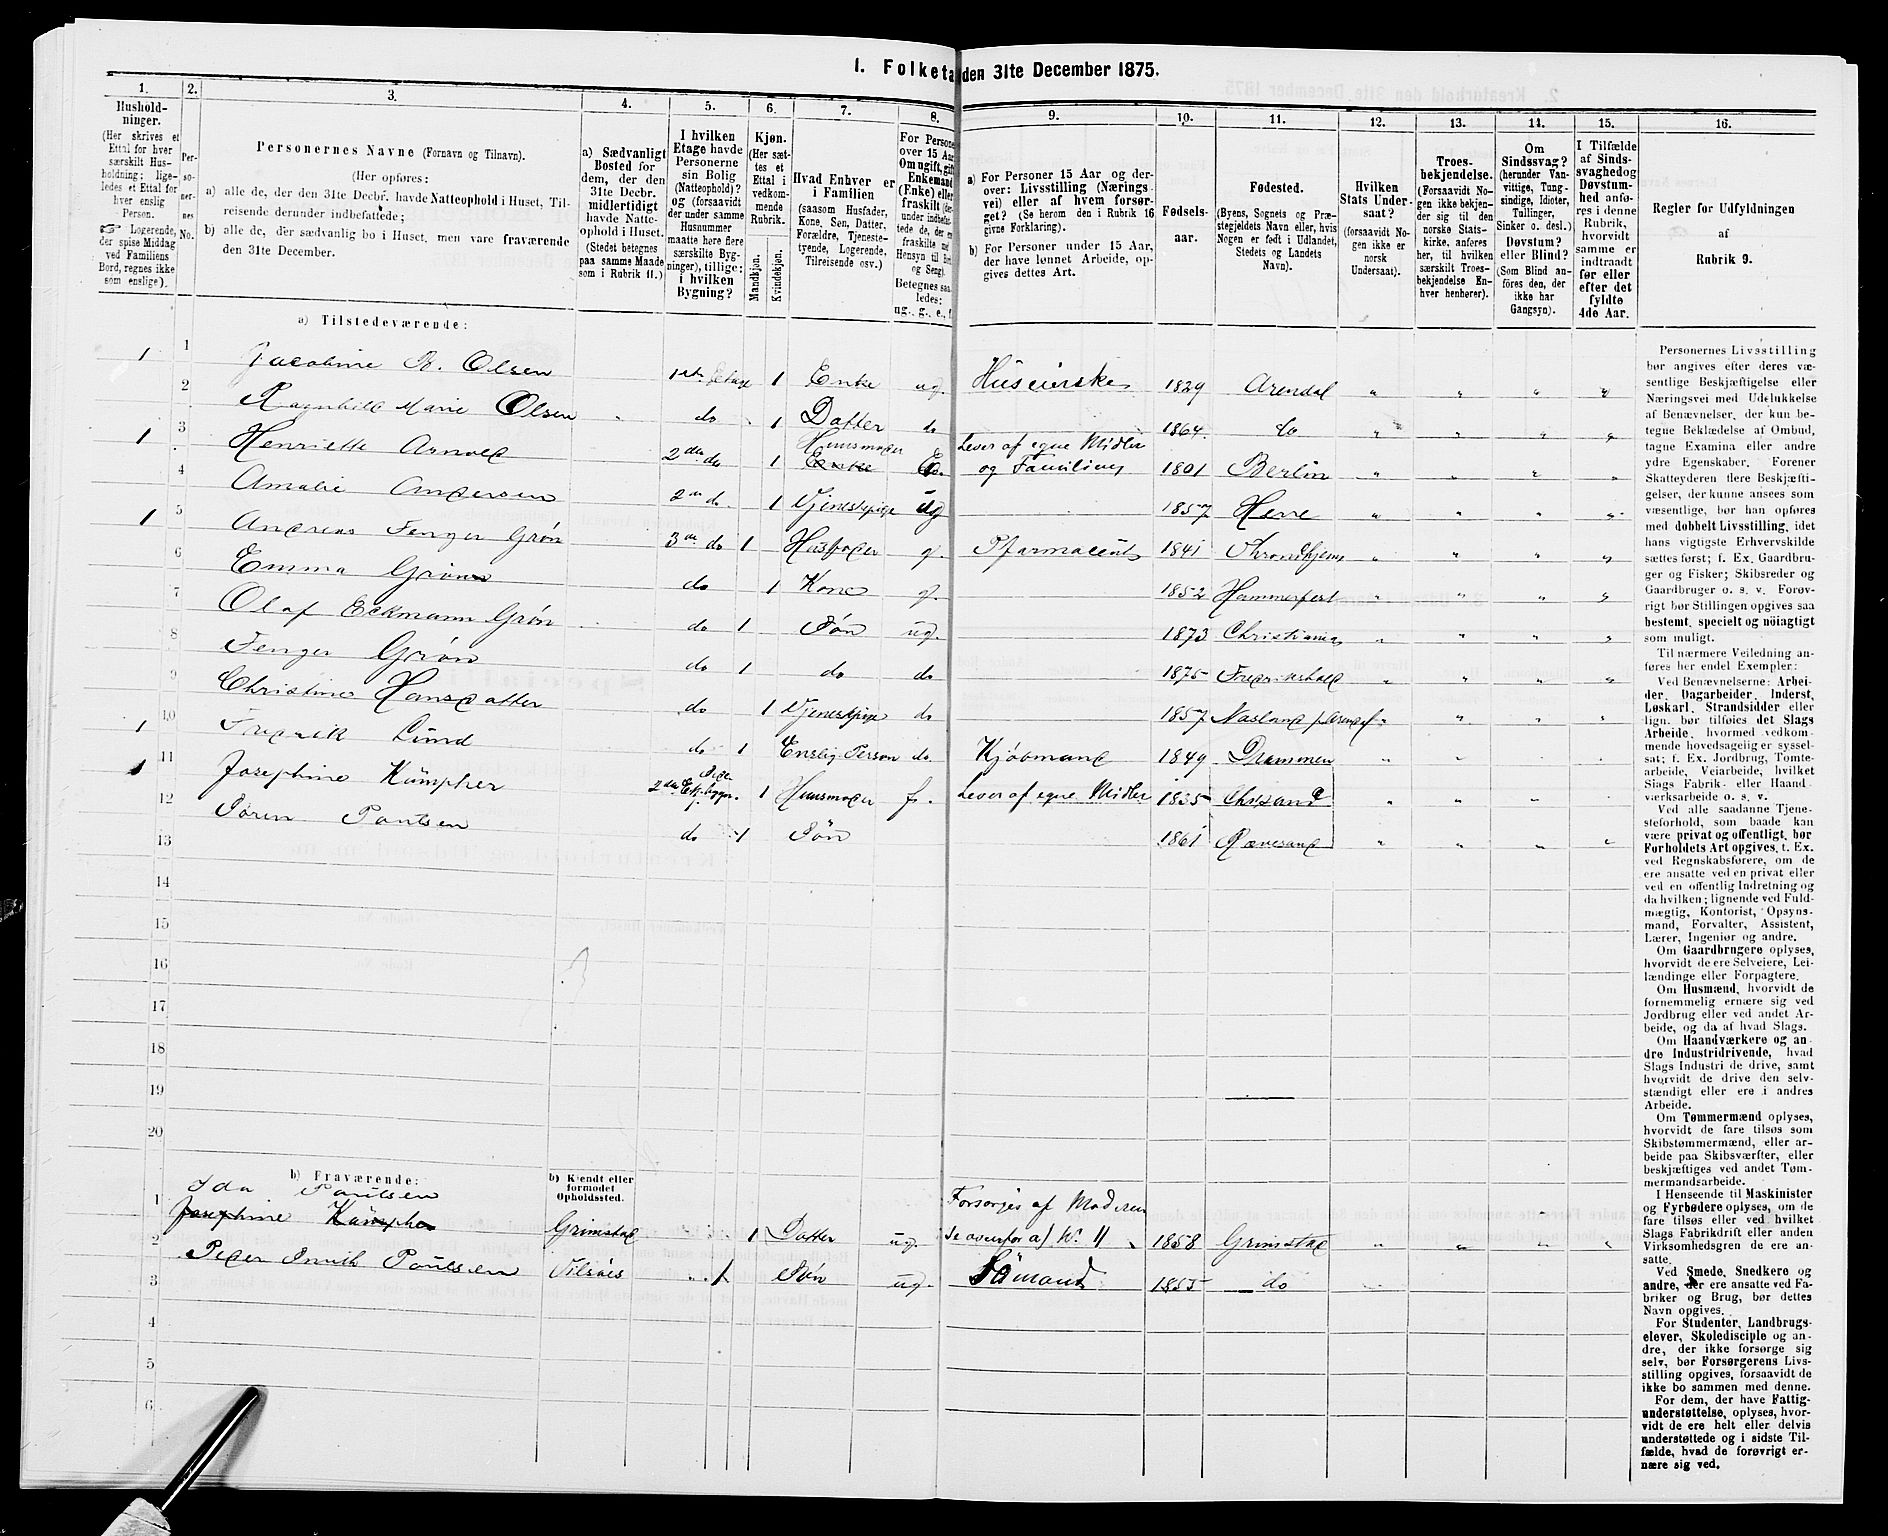 1. Folketæ den 31te December 1875.
1. 2. 3. 4. 5. 6. 7. 8. 9. 10. 11. 12. 13. 14. 15. 16.
Hushold-
ninger.
(Her skrives et
Ettal for hver
særskilt Hus-
holdning; lige-
ledes et Ettal for
hver enslig
Person.
☞ Logerende,
der spise Middag
ved Familiens
Bord, regnes ikke
som enslige).
Per-
so-
ner-
nes
No.
Personernes Navne (Fornavn og Tilnavn).
(Her opføres:
a) alle de, der den 31te Decbr. havde Natteophold i Huset, Til-
reisende derunder indbefattede;
b) alle de, der sædvanlig bo i Huset, men vare fraværende
den 31te December.
a) Sædvanligt
Bosted for
dem, der den
31te Decbr.
midlertidigt
havde Natte-
ophold i Huset.
(Stedet betegnes
paa samme Maade
som i Rubrik 11.)
I hvilken
Etage havde
Personerne
sin Bolig
(Natteophold)?
og (forsaavidt
der under samme
Husnummer
maatte høre flere
særskilte Byg-
ninger), tillige:
i hvilken
Bygning?
Kjøn.
(Her sæt-
tes et
Ettal i
vedkom-
mende
Rubrik.
Mandkjøn.
Kvindekjøn.
Hvad Enhver er
i Familien
(saasom Husfader,
Kone, Søn, Datter,
Forældre, Tjeneste-
tyende, Logerende,
Tilreisende osv.)
For Persone
over 15 Aar
Om ugift, gift
Enkemand
(Enke) eller
fraskilt
under indbefat-
tede de, der
fraskilte med
Hensyn til Bor
og Seng).
Betegnes saa-
ledes:
ug., g., e., f.
a) For Personer 15 Aar og der-
over: Livsstilling (Nærings-
vei) eller af hvem forsør-
get? (Se herom den i Rubrik 16
givne Forklaring).
b) For Personer under 15 Aar,
der have lønnet Arbeide, op-
gives dettes Art.
Fødsels-
aar.
Fødested.
(Byens, Sognets og Præ-
stegjeldets Navn eller, hvis
Nogen er født i Udlandet,
Stedets og Landets
Navn).
Hvilken
Stats Under-
saat?
(forsaavidt No-
gen ikke er
norsk
Undersaat).
Troes-
bekjendelse.
(Forsaavidt No-
gen ikke bekjen-
der sig til den
norske Stats-
kirke, anføres
her, til hvilken
særskilt Troes-
bekjendelse En-
hver henhører).
Om
Sindssvag?
(herunder Van-
vittige, Tung-
sindige, Idioter,
Tullinger,
Sinker o. desl.)
Døvstum?
eller Blind?
(Som Blind an-
føres den, der
ikke har
Gangsyn).
I Tilfælde
af Sinds-
svaghed og
Døvstum-
hed anfø-
res i denne
Rubrik,
hvorvidt
samme er
indtraadt
før eller
efter det
fyldte
4de Aar.
Regler for Udfyldningen
af
Rubrik 9.
a) Tilstedeværende:
1 1 Jacobine B. Olsen 1ste Etage 1 Enke ug. Huseierske 1829 Arendal
2 Ragnhild Marie Olsen do 1 Datter do 1864. do
1 3 Henriette Arnold 2den do 1 Huusmoder Enke E. Lever af egne Midler og Familiens 1801 Berlin
4 Amalie Andersen 2den do. 1 Tjenestepige ug 1857 Herre
1 5 Andreas Fenger Grøn 3die do 1 Husfader g. Pharmaceut 1841 Throndhjem
6 Emma Grøn do 1 Kone g. 1852 Hammerfest
7 Olaf Eckmann Grøn do 1 Søn ug. 1873 Christiania
8 Fenger Grøn do 1 do do 1875 Fredrikshald
9 Christine Hansdatter do 1 Tjenestepige do 1857 Næsland p. Arendal
1 10 Fredrik Lund do 1 Enslig Person do. Kjøbmand 1849 Drammen
1 11 Josephine Kämpher 2den Etg. Sidebygn. 1 Huusmoder f. Lever af egne Midler 1835 Chrsand
12 Søren Paulsen do 1 Søn 1861 Rævesand
13
14
15
16
17
18
19
20
b) Fraværende:
b) Kjendt eller
formodet
Opholdssted.
1 Ida Paulsen
Josephine Kämpher Grimstad 1 Datter ug. Forsørges af Moderen se ovenfor a) No. 11 1858 Grimstad
2 Peder Smith Paulsen Tilsøes 1 Søn ug. Sømand 1855 do
3
4
5
6
Personernes Livsstilling
bør angives efter deres væ-
sentlige Beskjæftigelse eller
Næringsvei med Udelukkelse
af Benævnelser, der kun be-
tegne Beklædelse af Ombud,
tagne Examina eller andre
ydre Egenskaber. Forener
Skatteyderen flere Beskjæfti-
gelser, der kunne ansees som
væsentlige, bør han opføres
med dobbelt Livsstilling, idet
hans vigtigste Erhvervskilde
sættes først; f. Ex. Gaardbru-
ger og Fisker; Skibsreder og
Gaardbruger o. s. v. Forøv-
rigt bør Stillingen opgives saa
bestemt, specielt og nöiagtigt
som muligt.
Til nærmere Veiledning an-
føres her endel Exempler:
Ved Benævnelserne: Arbei-
der, Dagarbeider, Inderst,
Løskarl, Strandsidder eller
lign. bør tilføies det Slags
Arbeide, hvormed vedkom-
mende hovedsagelig er syssel-
sat; f. Ex. Jordbrug, Tomte-
arbeide, Veiarbeide, hvilket
Slags Fabrik- eller Haand-
værksarbeide o. s. v.
Ved alle saadanne Tjene-
steforhold, som baade kan
være privat og offentligt, bør
Forholdets Art opgives, t. Ex.
ved Regnskabsførere, om de
ere ansatte ved en privat eller
ved en offentlig Indretning og
da hvilken; lignende ved Fuld-
mægtig, Kontorist, Opsyns-
mand, Forvalter, Assistent,
Lærer, Ingeniør og andre.
Om Gaardbrugere oplyses,
hvorvidt de ere Selveiere, Lei-
lændinge eller Forpagtere.
Om Husmænd, hvorvidt de
fornemmelig ernære sig ved
Jordbrug eller ved andet Ar-
beide, og da af hvad Slags.
Om Haandværkere og an-
dre Industridrivende, hvad
Slags Industri de drive, samt
hvorvidt de drive den selv-
stændigt eller ere i andres
Arbeide.
Om Tømmermænd oplyses,
hvorvidt de fare tilsøs som
Skibstømmermænd, eller ar-
beide paa Skibsværfter, eller
beskjæftiges ved andet Tøm-
mermandsarbeide.
I Henseende til Maskinister
og Fyrbødere oplyses, om de
fare tilsøs eller ved hvilket
Slags Fabrikdrift eller anden
Virksomhedsgren de ere an-
satte.
Ved Smede, Snedkere og
andre, der ere ansatte ved Fa-
briker og Brug, bør dettes
Navn opgives.
For Studenter, Landbrugs-
elever, Skoledisciple og an-
dre, der ikke forsørge sig
selv, bør Forsørgerens Livs-
stilling opgives, forsaavidt de
ikke bo sammen med denne.
For dem, der have Fattig-
understøttelse, oplyses, hvor-
vidt de ere helt eller delvis
understøttede og i sidste Til-
fælde, hvad de forøvrigt er-
nære sig ved.